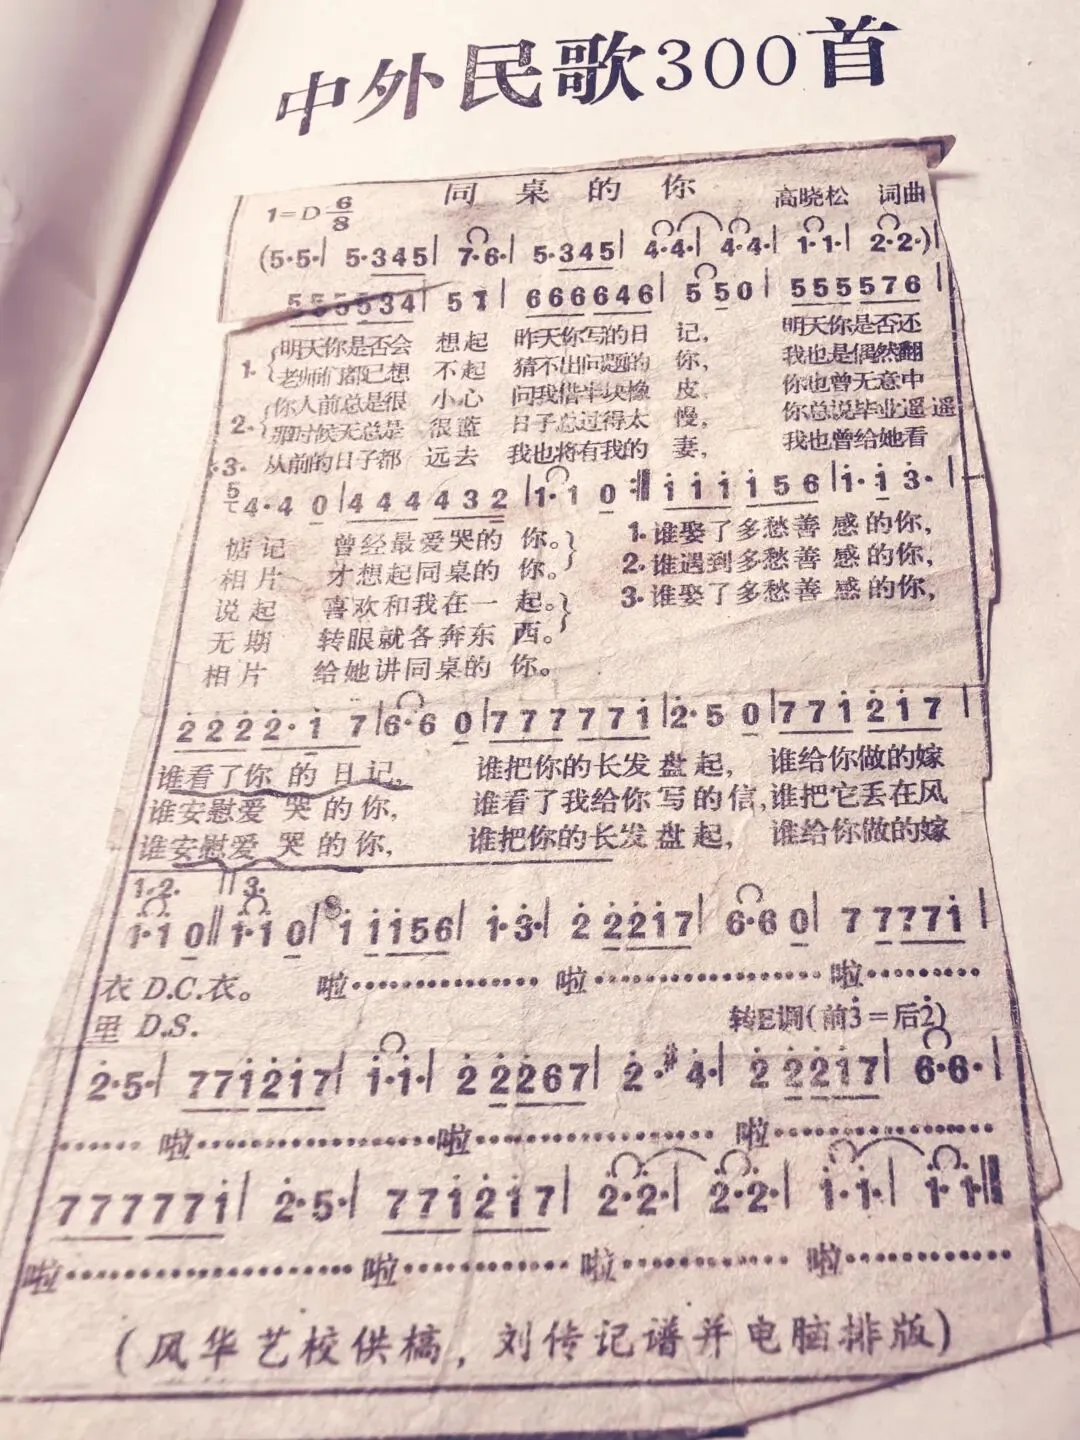 中外民歌300首
同桌的你
1=D 6/8
高晓松 词曲
(5·5·| 5·345| 7·6·| 5·345| 4·4·| 4·4·| 1·1·| 2·2·)|
555534| 51| 666646| 5 50| 555576|
明天你是否会 想起 昨天你写的日 记, 明天你是否还
1. 老师们都已想 不起 猜不出问题的 你, 我也是偶然翻
你人前总是很 小心 问我借半块橡 皮, 你也曾无意中
2. 那时候天总是 很蓝 日子总过得太 慢, 你总说毕业遥遥
3. 从前的日子都 远去 我也将有我的 妻, 我也曾给她看
4·4 0|444 432|1·1 0:‖i i i i 5 6|i·i 3·|
惦记 曾经最爱哭的 你。 1.谁娶了多愁善 感的你,
相片 才想起同桌的 你。 2.谁遇到多愁善 感的你,
说起 喜欢和我在一 起。 3.谁娶了多愁善 感的你,
无期 转眼就各奔东 西。
相片 给她讲同桌的 你。
2222·i 7|6·6 0|777 77i|2·5 0|77i 2i7|
谁看了你 的日记, 谁把你的长发盘起, 谁给你做的嫁
谁安慰爱 哭的你, 谁看了我给你写的信,谁把它丢在风
谁安慰爱 哭的你, 谁把你的长发盘起, 谁给你做的嫁
1.2. 3.
i·i 0‖i·i 0|i i i56|i·3·|2 22i7|6·6 0|7 777i|
衣 D.C.衣。 啦…………… 啦………………… 啦………
里 D.S.
转E调(前3=后2)
2·5·|77i2i7|i·i·|2 2267|2·#4·|2 22i7|6·6·|
…… 啦……………………啦……………………啦……………………
77777i|2·5·|77i2i7|2·2·|2·2·|i·i·|i·i·‖
啦………………………啦……………啦…………啦…………
(风华艺校供稿,刘传记谱并电脑排版)